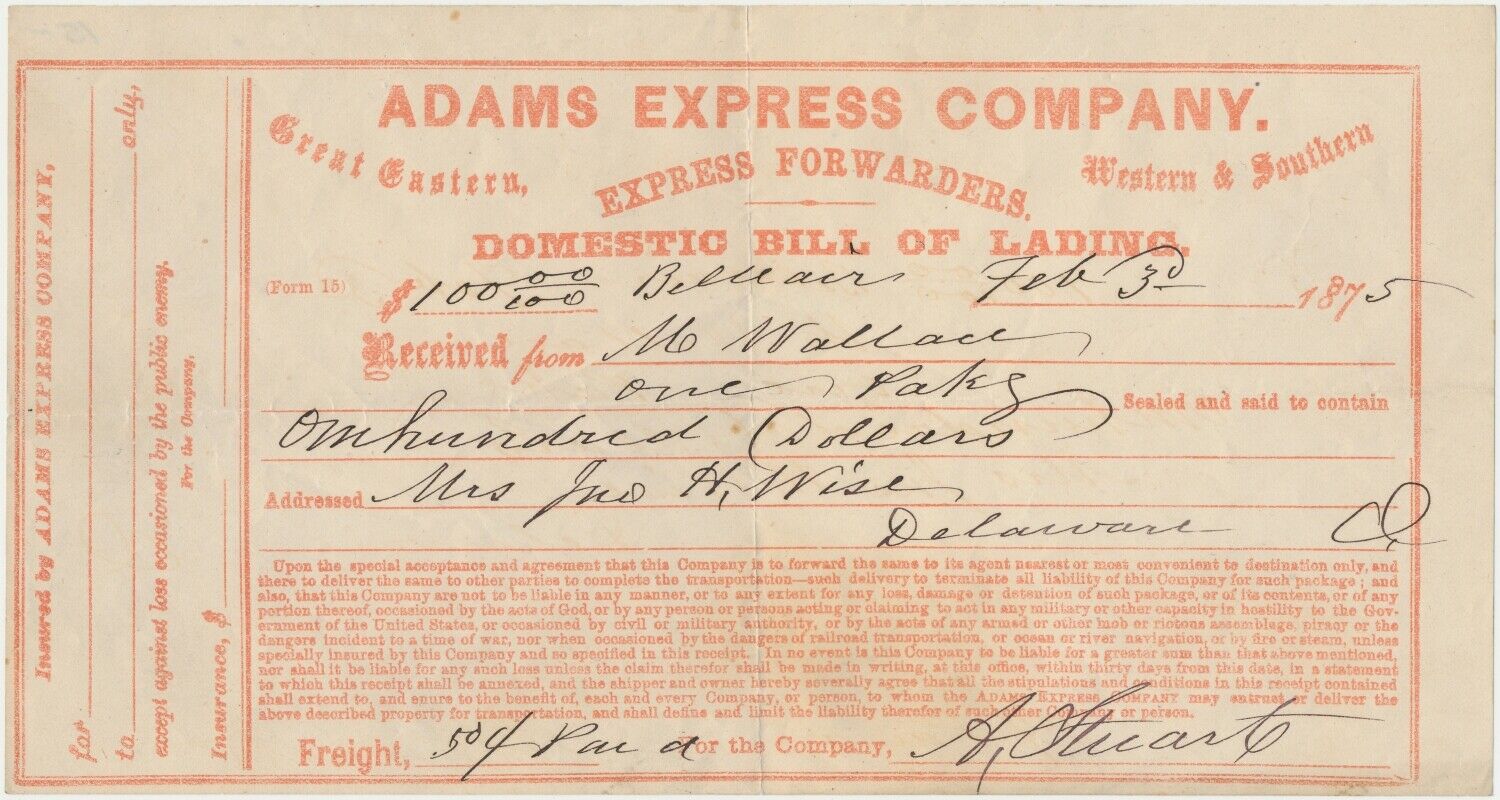 ADAMS EXPRESS COMPANY.
Great Eastern,
EXPRESS FORWARDERS.
Western & Southern
DOMESTIC BILL OF LADING.
(Form 15) $100 00/100 Bellair Feb 3d 1875
Received from M Wallace
one Pakg Sealed and said to contain
Onehundred Dollars
Addressed Mrs Jno H, Wise
Delaware O,
Upon the special acceptance and agreement that this Company is to forward the same to its agent nearest or most convenient to destination only, and
there to deliver the same to other parties to complete the transportation—such delivery to terminate all liability of this Company for such package; and
also, that this Company are not to be liable in any manner, or to any extent for any loss, damage or detention of such package, or of its contents, or of any
portion thereof, occasioned by the acts of God, or by any person or persons acting or claiming to act in any military or other capacity in hostility to the Gov-
ernment of the United States, or occasioned by civil or military authority, or by the acts of any armed or other mob or riotous assemblage, piracy or the
dangers incident to a time of war, nor when occasioned by the dangers of railroad transportation, or ocean or river navigation, or by fire or steam, unless
specially insured by this Company and so specified in this receipt. In no event is this Company to be liable for a greater sum than that above mentioned,
nor shall it be liable for any such loss unless the claim therefor shall be made in writing, at this office, within thirty days from this date, in a statement
to which this receipt shall be annexed, and the shipper and owner hereby severally agree that all the stipulations and conditions in this receipt contained
shall extend to, and enure to the benefit of, each and every Company, or person, to whom the ADAMS EXPRESS COMPANY may entrust or deliver the
above described property for transportation, and shall define and limit the liability therefor of such other Company or person.
Freight, 50 Paid For the Company, A, Stuart
Insured by ADAMS EXPRESS COMPANY,
for
to only,
except against loss occasioned by the public enemy.
For the Company,
Insurance, $